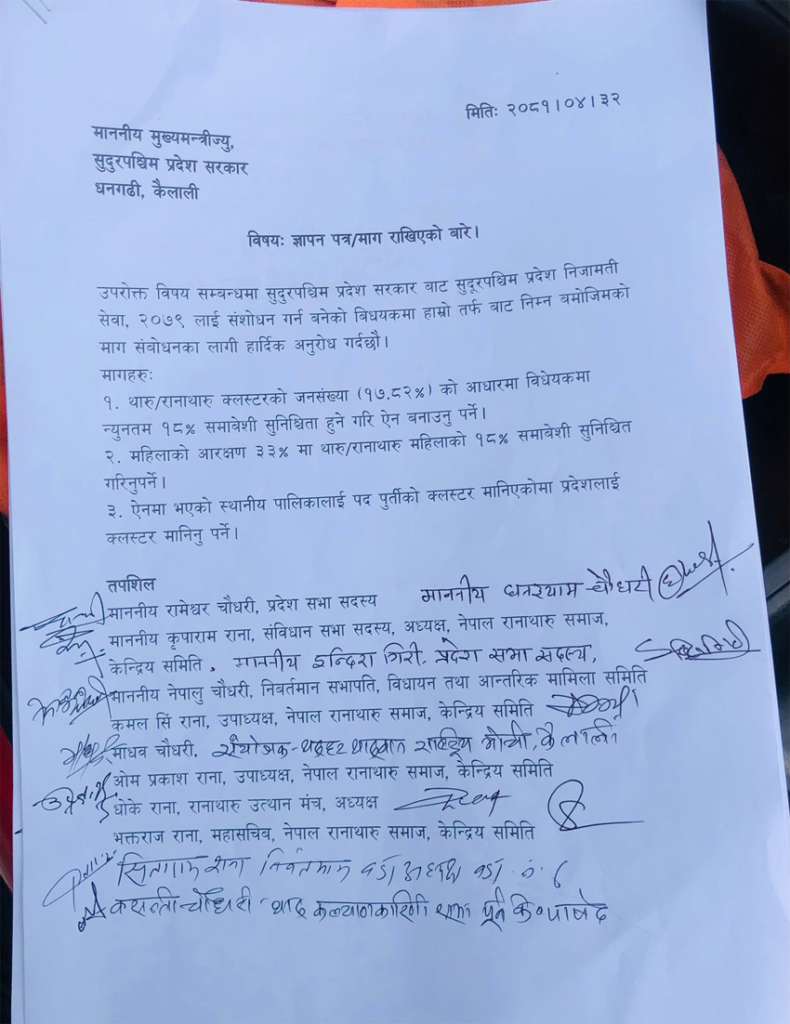 मितिः २०८१।०४।३२
माननीय मुख्यमन्त्रीज्यु,
सुदुरपश्चिम प्रदेश सरकार
धनगढी, कैलाली
विषयः ज्ञापन पत्र/माग राखिएको बारे।
उपरोक्त विषय सम्बन्धमा सुदुरपश्चिम प्रदेश सरकार बाट सुदूरपश्चिम प्रदेश निजामती
सेवा, २०७९ लाई संशोधन गर्न बनेको विधयकमा हाम्रो तर्फ बाट निम्न बमोजिमको
माग संबोधनका लागी हार्दिक अनुरोध गर्दछौ।
मागहरुः
१. थारु/रानाथारु क्लस्टरको जनसंख्या (१७.८२%) को आधारमा विधेयकमा
न्युनतम १८% समाबेशी सुनिश्चिता हुने गरि ऐन बनाउनु पर्ने।
२. महिलाको आरक्षण ३३% मा थारु/रानाथारु महिलाको १८% समाबेशी सुनिश्चित
गरिनुपर्ने।
३. ऐनमा भएको स्थानीय पालिकालाई पद पुर्तीको क्लस्टर मानिएकोमा प्रदेशलाई
क्लस्टर मानिनु पर्ने।
तपशिल
माननीय रामेश्वर चौधरी, प्रदेश सभा सदस्य माननीय घनश्याम चौधरी
माननीय कृपाराम राना, संविधान सभा सदस्य, अध्यक्ष, नेपाल रानाथारु समाज,
केन्द्रिय समिति, माननीय इन्दिरा गिरी, प्रदेश सभा सदस्य,
माननीय नेपालु चौधरी, निवर्तमान सभापति, विधायन तथा आन्तरिक मामिला समिति
कमल सिं राना, उपाध्यक्ष, नेपाल रानाथारु समाज, केन्द्रिय समिति
माधव चौधरी, संयोजक - थरुहट थारुवान राष्ट्रिय मोर्चा, कैलाली
ओम प्रकाश राना, उपाध्यक्ष, नेपाल रानाथारु समाज, केन्द्रिय समिति
धोके राना, रानाथारु उत्थान मंच, अध्यक्ष
भक्तराज राना, महासचिव, नेपाल रानाथारु समाज, केन्द्रिय समिति
सिताराम राना निवर्तमान वडा अध्यक्ष वडा नं. ६
चौधरी थारु कल्याणकारिणी सभा पूर्व